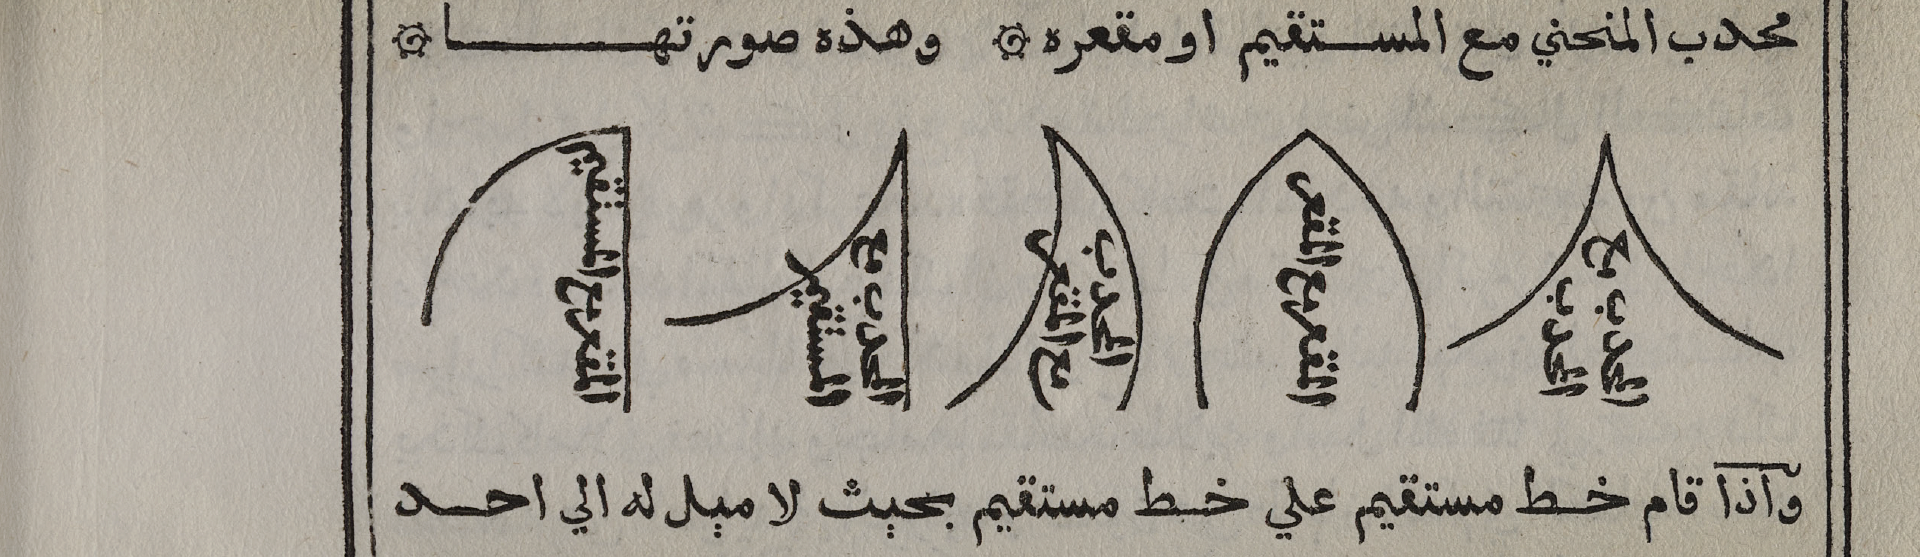 محدب المنحني مع المستقيم او مقعره وهذه صورتها
المحدب مع
المحدب
المقعر مع المقعر
المحدب
مع المقعر
المحدب مع
المستقيم
المقعر مع المستقيم
وآذا قام خط مستقيم علي خط مستقيم بحيث لا ميل له الي احد